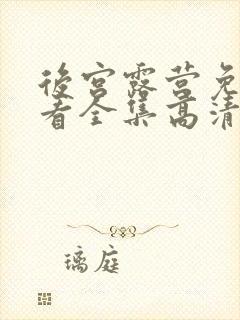 後宫露营免
看全集高清
璃庭